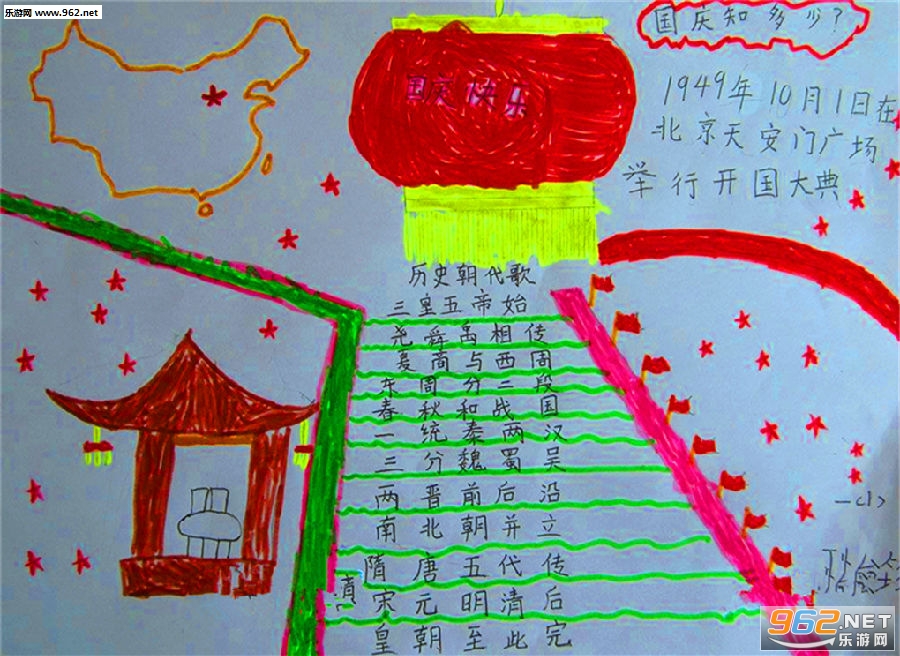 乐游网 www.962.net
国庆快乐
国庆知多少?
1949年10月1日在
北京天安门广场
举行开国大典
历史朝代歌
三皇五帝始
尧舜禹相传
夏商与西周
东周分二段
春秋和战国
一统秦两汉
三分魏蜀吴
两晋前后沿
南北朝并立
隋唐五代传
宋元明清后
皇朝至此完
962.NET
962.NET
乐游网